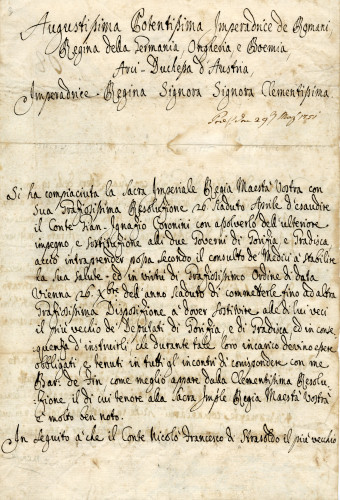 Augustissima Potentissima Imperadrice de Romani
Regina della Germania, Ongheria e Boemia,
Arci-Duchessa d'Austria,
Imperadrice-Regina Signora Signora Clementissima
29
Si ha compiaciuta la Sacra Imperiale Regia Maestà Vostra con
Sua Graziosissima Resoluzione 26. Scaduto Aprile d'esaudire
il Conte Gian-Ignazio Coronini con assolverlo dell'ulteriore
impegno e sostituzione alli due Governi di Gorizia e Gradisca
acciò intraprender possa secondo il consulto de Medici a stabilire
la Sua Salute - ed in virtù di Graziosissimo Ordine di data
Vienna 26. Xbre dell'anno scaduto di commetterle fino ad altra
Graziosissima Disposizione à dover sostituire alle di lui veci
il più vecchio de' Deputati di Gorizia, e di Gradisca ed in conse
quenza d'instruirli, che durante tale loro incarico devino essere
obbligati e tenuti in tutti gl' incontri di corrispondere con me
Bar. de Fin come meglio appare dalla Clementissima Resolu
zione il di cui tenore alla Sacra Imple Regia Maestà Vostra
è molto ben noto.
In seguito a' che il Conte Nicolò Francesco di Strasoldo el più vecchio